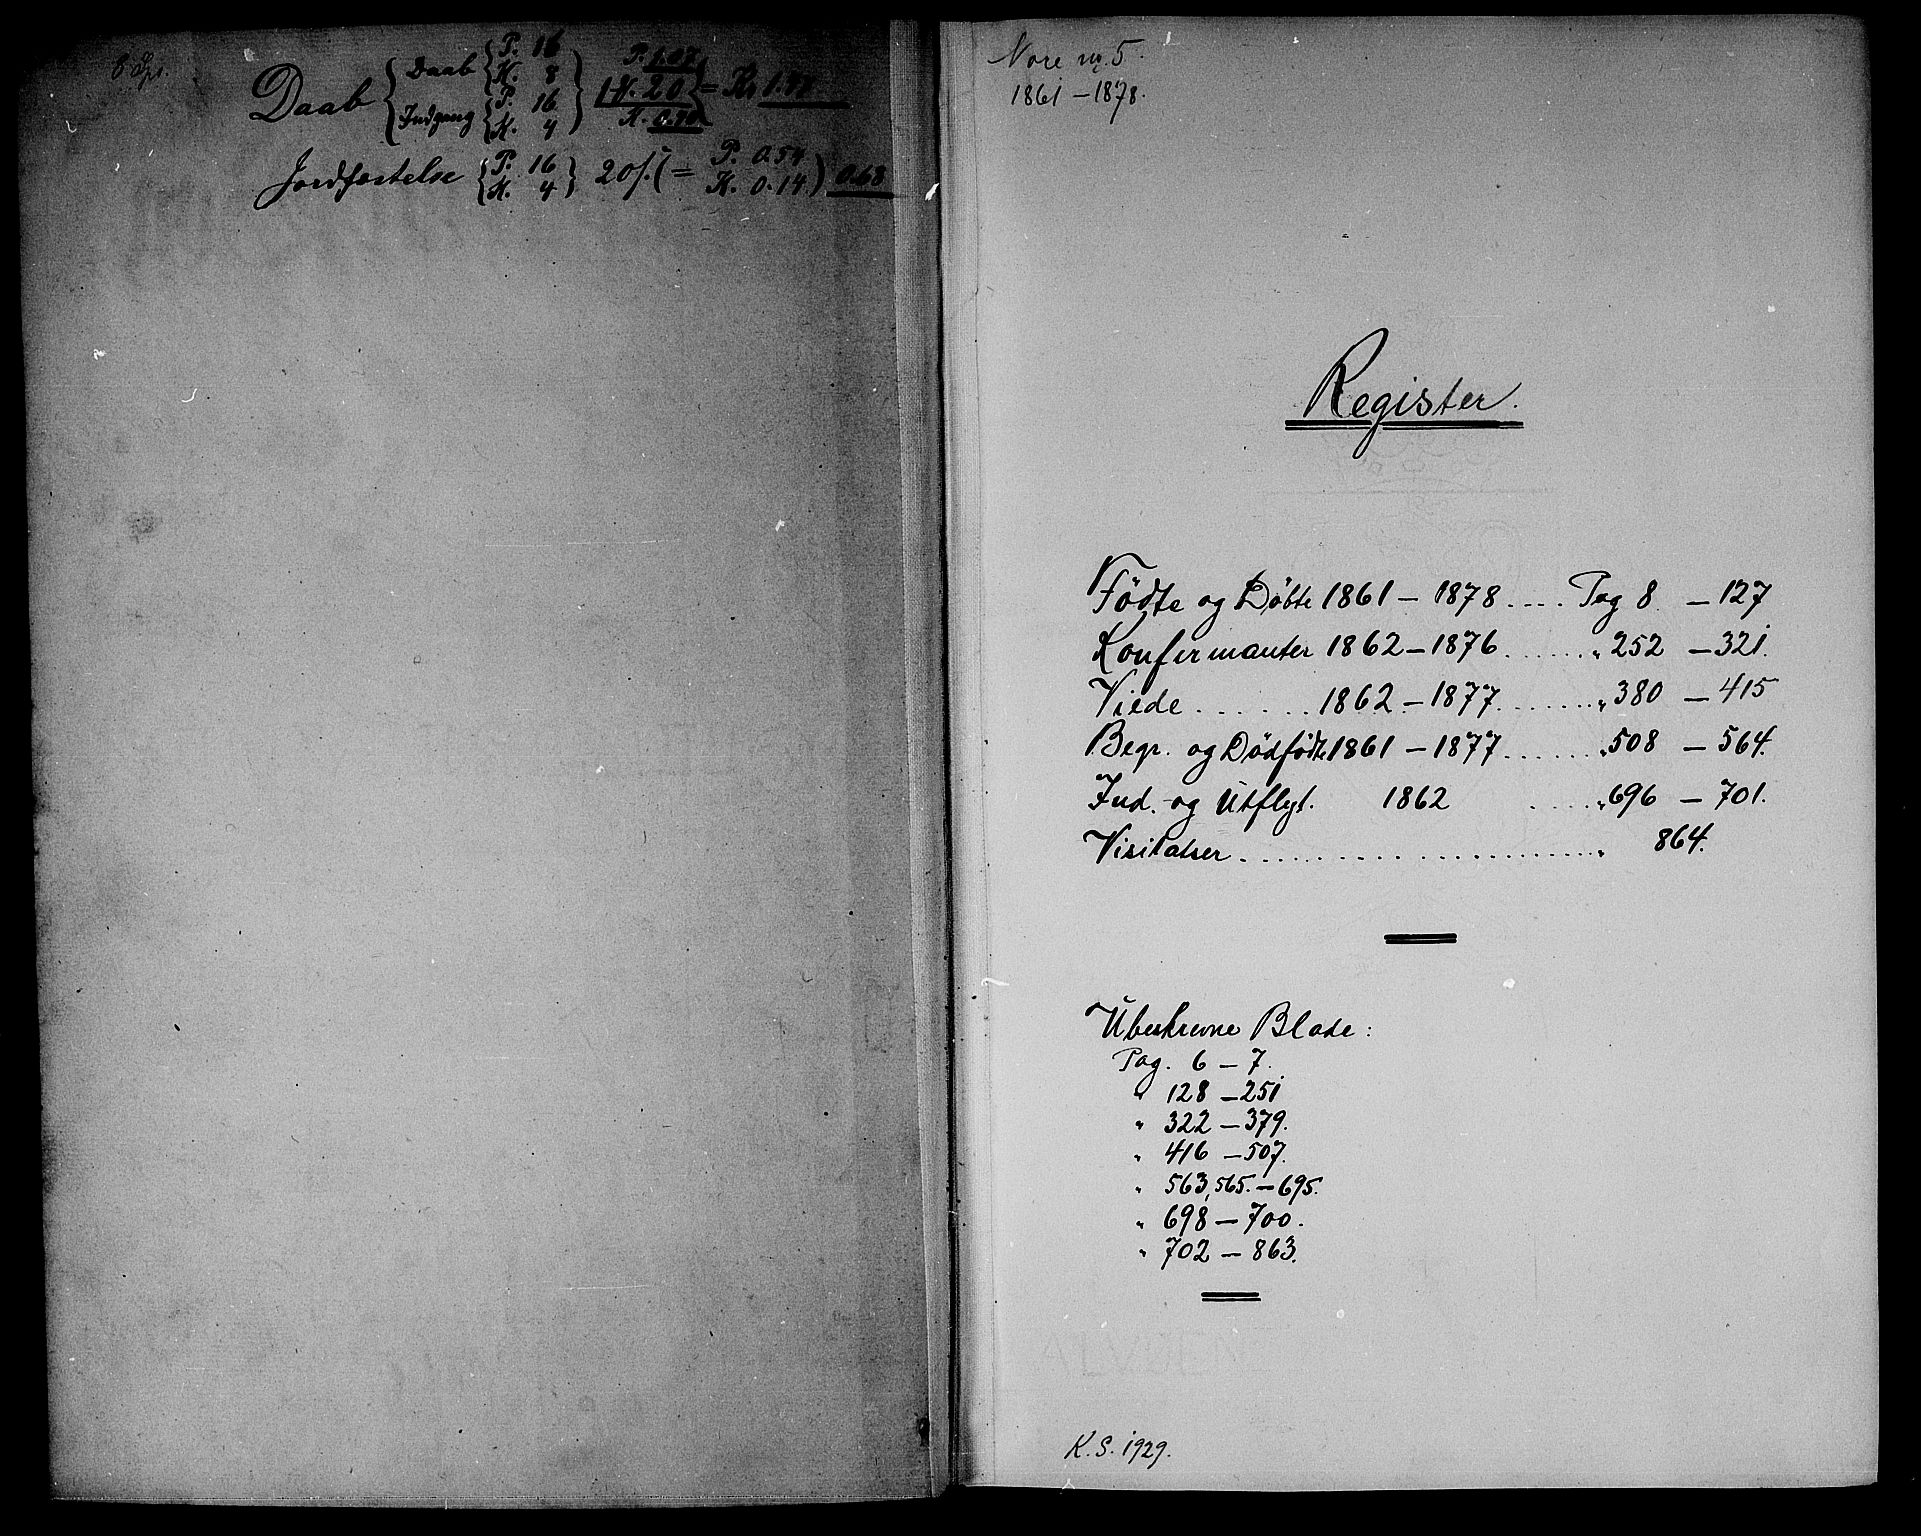 Daab { Daab { P. 16 K. 8 Indgang { P. 16 K. 4 } P. 1.07 1 V. 20 = Kr
Jordfæstelse { P. 16 K. 4 } 20 /. ( = P. 0.54 K. 0.14 ) 0.68
Nore nr. 5.
1861 – 1878.
Register.
Födte og Döbte 1861 – 1878 .... Pag 8 – 127
Konfirmanter 1862 – 1876 ...... " 252 – 321.
Viede ...... 1862 – 1877 ....... " 380 – 415
Begr. og Dödfödte 1861 – 1877 ...... " 508 – 564.
Ind. og Utflyt. 1862 ..... " 696 – 701.
Visitatser ........................ " 864.
Ubeskrevne Blade :
Pag. 6 – 7.
" 128 – 251
" 322 – 379.
" 416 – 507.
" 563, 565. – 695.
" 698 – 700.
" 702 – 863.
K. S. 1929.